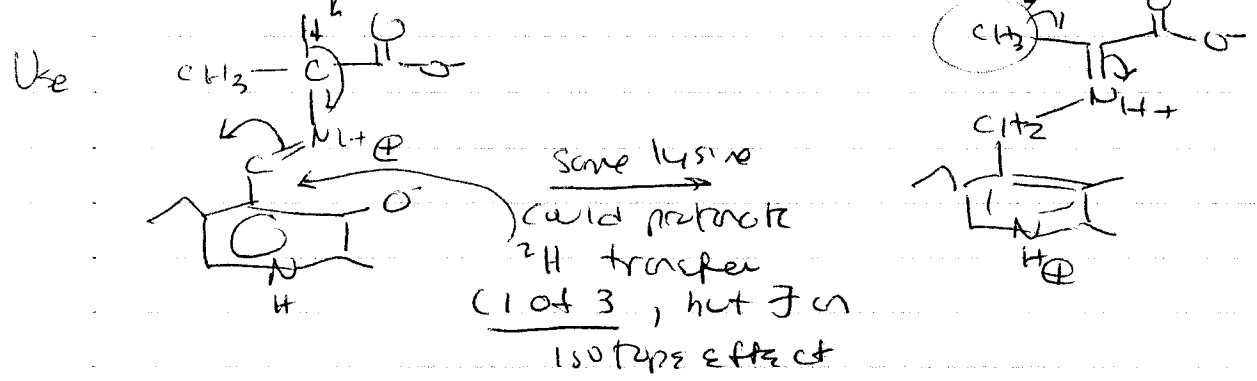 Use
H
CH3—C—O-
NH+ ⊕
C
O-
N
H
same lysine
could protonate
2H transfer
(1 of 3, but
isotope effect
CH3
O-
NH+
CH2
N
H⊕